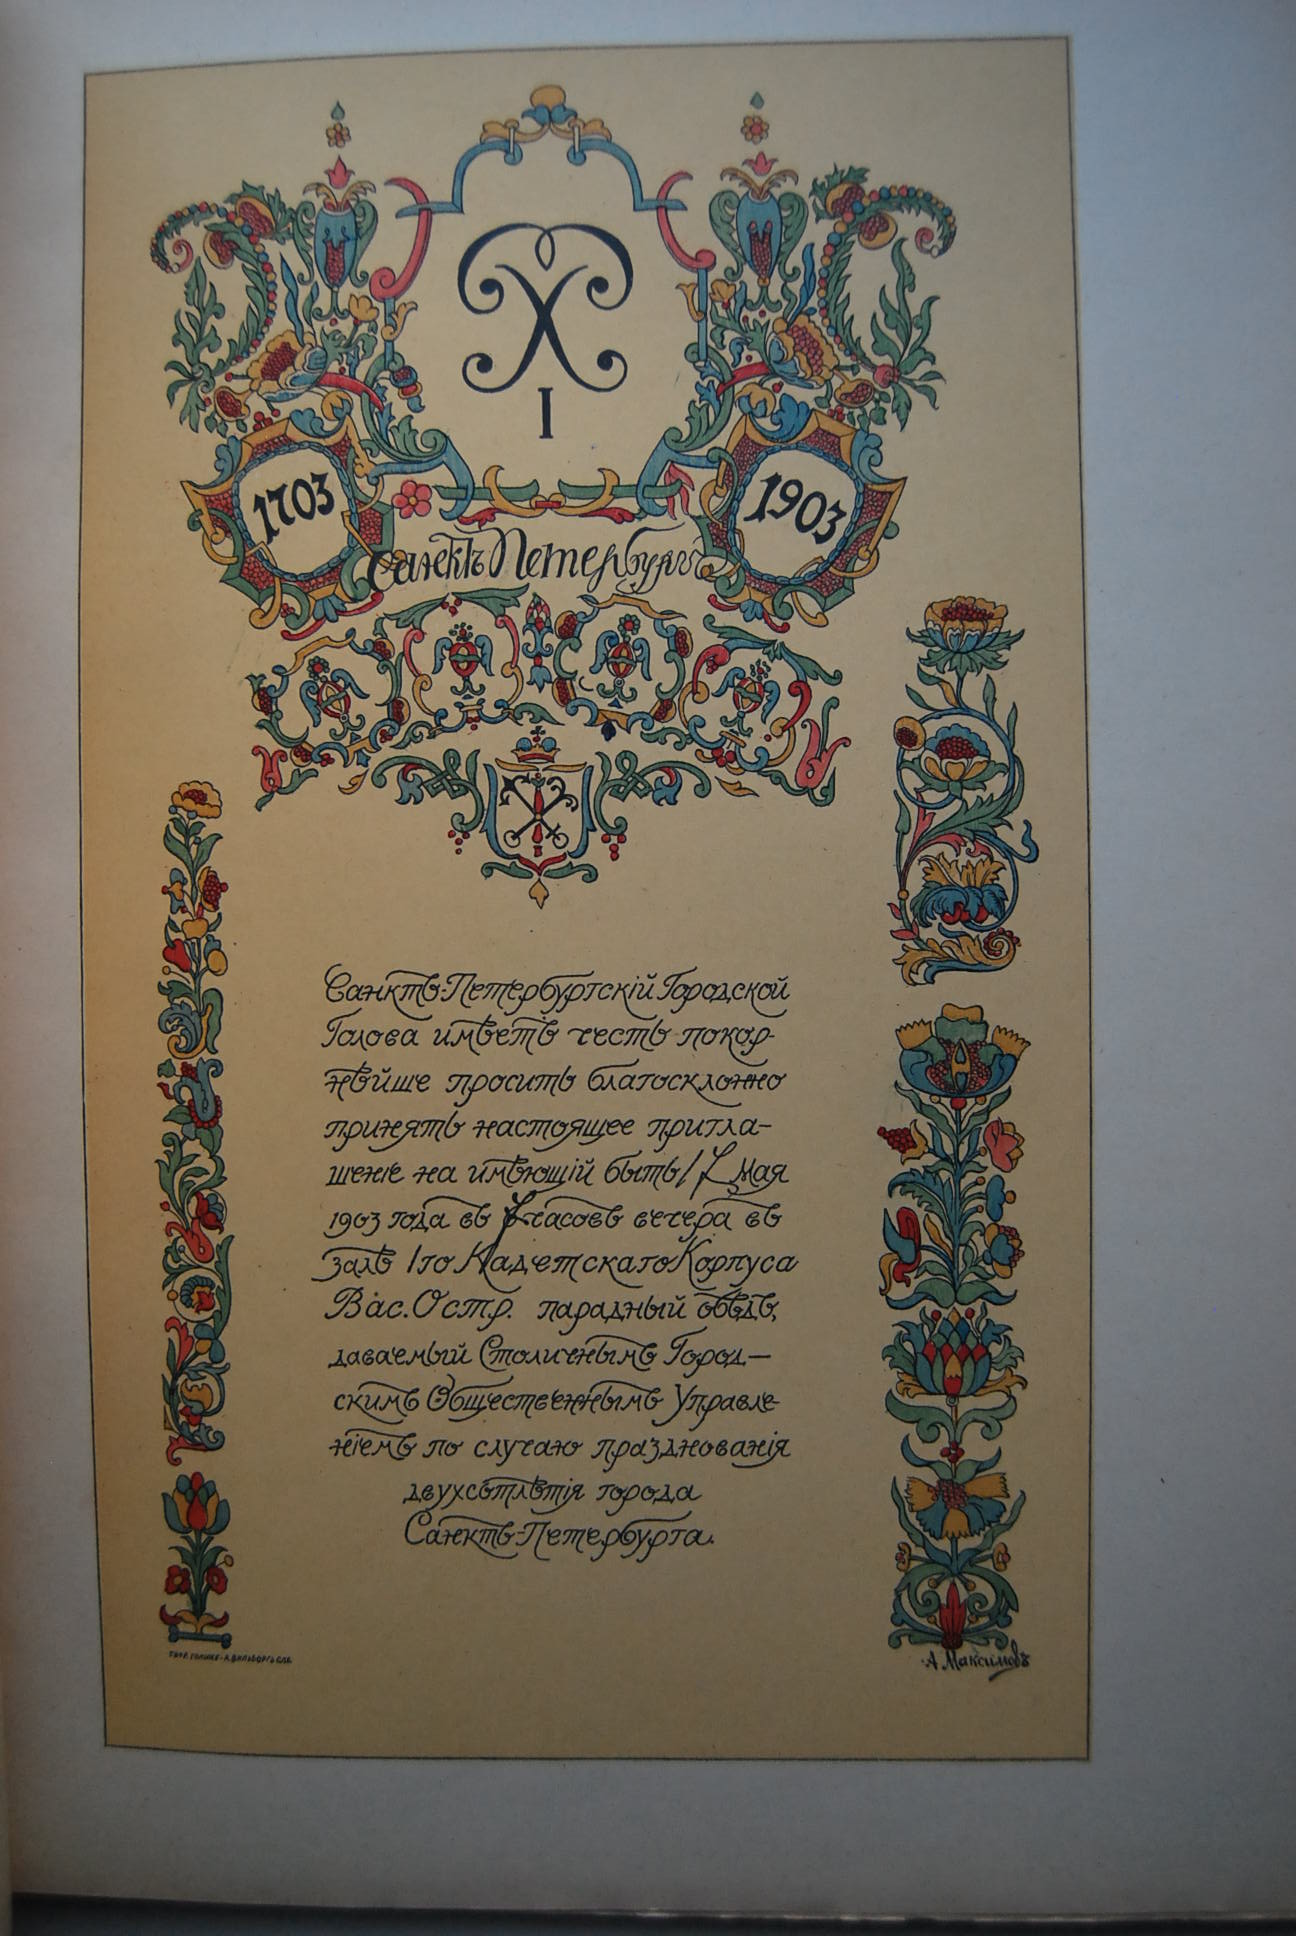 I
1703
1903
Санктъ Петербургъ
Санктъ-Петербургскій Городской
Голова имѣетъ честь покор-
нѣйше просить благосклонно
принять настоящее пригла-
шеніе на имѣющій быть 17 Мая
1903 года въ часовъ вечера въ
залѣ 1го Кадетскаго Корпуса
Вас. Остр. парадный обѣдъ,
даваемый Столичнымъ Город—
скимъ Общественнымъ Управле-
ніемъ по случаю празднованія
двухсотлѣтія города
Санктъ-Петербурга.
А. Максимовъ